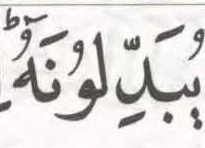 يُبَدِّلُونَهٗؕ